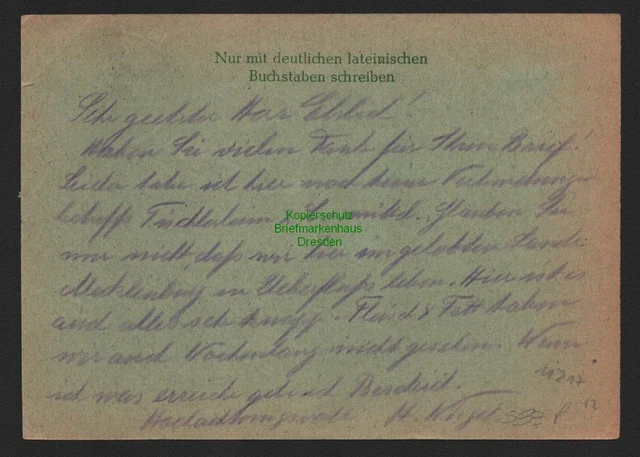 Nur mit deutlichen lateinischen
Buchstaben schreiben
Sehr geehrter Herr
Haben Sie vielen Dank für Ihren Brief!
Leider habe ich hier noch keine
betreffs Tischlerleim & Glauben Sie
nur nicht, daß wir hier im gelobten Lande:
Mecklenburg im Überfluß leben. Hier ist es
auch alles sehr knapp. Fleisch & Fett haben
wir auch Wochenlang nicht gesehen. Wenn
ich was erreiche gebe ich Bescheid.
Hochachtungsvoll H.
Kopierschutz
Briefmarkenhaus
Dresden